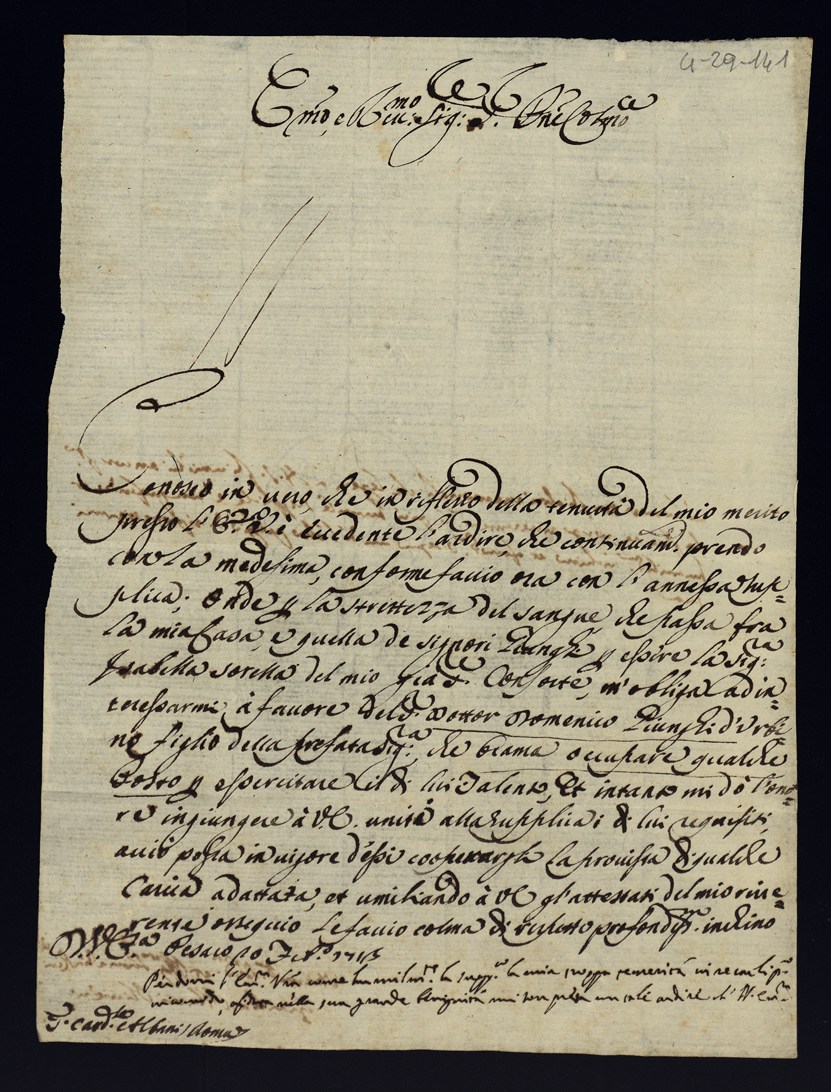 4-29-141
Emo, e Rmo Sig: Sig: Pne Colmo
Conosco in vero, che in riflesso della tenuità del mio merito
presso l'E.V. è eccedente l'ardire, che continuam. prendo
con la medesima, conforme faccio ora con l'annessa sup=
plica; Onde p la strettezza del sangue che passa fra
la mia Casa, e quella de Signori Piunghi p essere la Sig:ra
Isabella sorella del mio già Consorte, m'obliga ad in=
teressarmi à favore del Sr. Dottor Domenico Piunghi d'Urbi=
no figlio della prefata Sig:ra, che brama occupare qualche
Posto p essercitare il di lui Talento, Et intanto mi dò l'ono=
re ingiungere à VE. unito alla supplica i di lui requisiti,
acciò possa in vigore d'essi cooperargli la provista di qualche
Carica adattata, et umiliando à VE gl'attestati del mio rive=
rente ossequio le faccio colma di rispetto profondiss. inchino
D.V.E.za Pesaro 10 1713
Perdoni l'Em. Vra come la la mia troppo temerità
nella sua grande benignità mi un tale ardire di V. Em.
Card.le Albani Roma